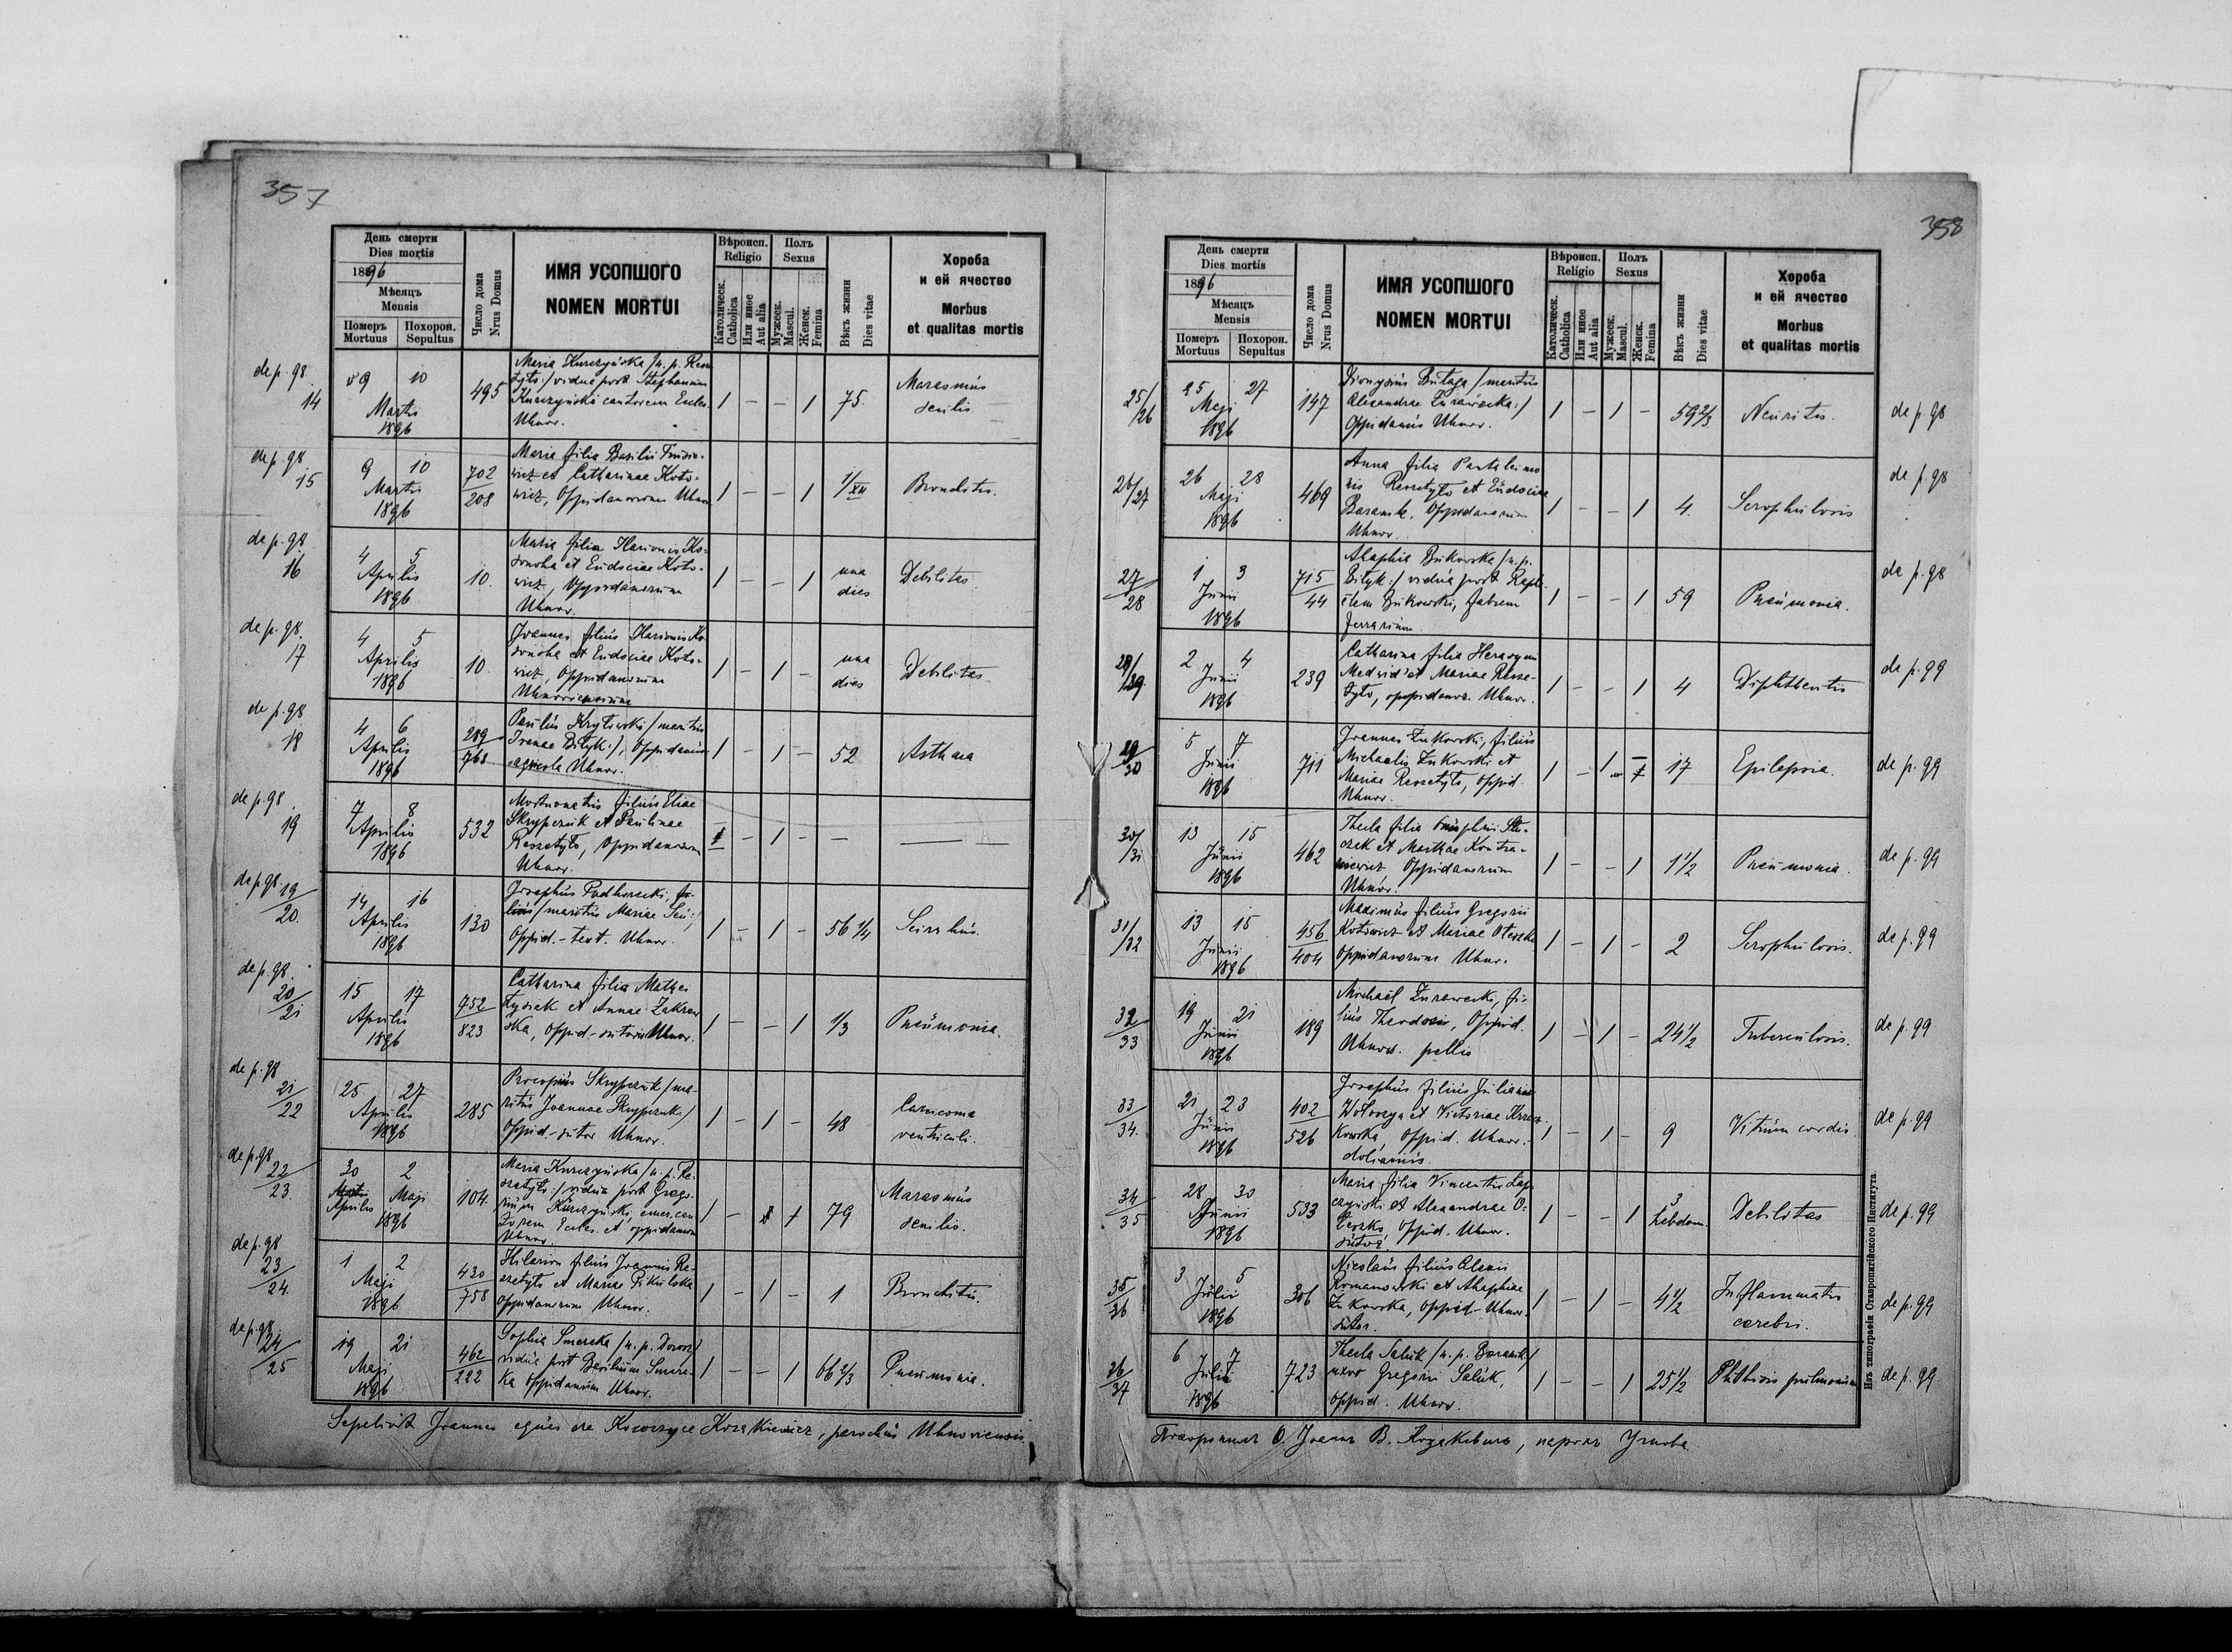 357
День смерти
Dies mortis
1896
Мѣсяцъ
Mensis
Померъ
Mortuus
Похорон.
Sepultus
Число дома
Nrus Domus
ИМЯ УСОПШОГО
NOMEN MORTUI
Вѣроисп.
Religio
Католическ.
Catholica
Или иное
Aut alia
Полъ
Sexus
Мужеск.
Mascul.
Женск.
Femina
Вѣкъ жизни
Dies vitae
Хороба
и ей ячество
Morbus
et qualitas mortis
de p. 98
14
9 10
Martii
1896
495
Maria Kurczyńska /n. p. Resze-
tyło:/ vidua post Stephanum
Kurczyński cantorem Eccles.
Uhnov.
1 - - 1
75.
Marasmus
senilis
de p. 98
15
9 10
Martii
1896
702
208
Maria filia Basilii
wicz et Catharinae Koto-
wicz, Oppidanorum Uhnov.
1 - - 1
1/XII
Bronchitis.
de p. 98
16
4 5
Aprilis
1896
10.
Maria filia Ilarionis Ko-
et Eudociae Koto-
wicz, Oppidanorum
Uhnov.
1 - - 1
una
dies
Debilitas
de p. 98.
17
4 5
Aprilis
1896
10.
Joannes filius Ilarionis Ko-
et Eudociae Koto-
wicz, Oppidanorum
Uhnoviensium
1 - 1 -
una
dies
Debilitas
de p. 98
18
4 6
Aprilis
1896
289
768
Paulus Krytowski /maritus
Irenae Bityk:/, Oppidanus
agricola Uhnov.
1 - 1 -
52
Asthma
de p. 98
19
7 8
Aprilis
1896
532
Mortuonatus filius Eliae
Skrypczuk et Paulinae
Reszetyło, Oppidanorum
Uhnov.
1 - 1 -
-
de p. 98
19
20.
14 16
Aprilis
1896
130
Josephus Podhorecki, fi-
lius /maritus Mariae
Oppid.- text. Uhnov.
1 - 1 -
56 1/4
Scirrhus.
de p. 98.
20
21
15 17
Aprilis
1896
752
823
Catharina filia Mathei
Łysiek et Annae Zakrew
ska, Oppid-sutoris Uhnov.
1 - - 1
1/3
Pneumonia.
de p. 98
21
22
25 27
Aprilis
1896
285
Procopius Skrypczuk /ma-
ritus Joannae Skrypczuk:/
Oppid.- sutor Uhnov.
1 - 1 -
48
Carcicoma
ventriculi.
de p. 98
22
23.
30 2
Aprilis Maji
1896
104.
Maria Kurczyńska /n. p. Re-
szetyło:/ vidua post Grego-
rium Kurczyński, emer. can
torem Eccles. et oppidanum
Uhnov.
1 - 1
79
Marasmus
senilis.
de p. 98
23
24.
1 2
Maji
1896
430
758
Hilarion filius Joannis Re-
szetyło et Mariae Pikulska
Oppidanorum Uhnov.
1 - 1 -
1
Bronchitis.
de p. 98
24
25
19 21
Maji
1896
462
222
Sophia Smereka /n. p. Dorosz/
vidua post Basilium Smere-
ka Oppidanum Uhnov.
1 - - 1
66 2/3
Pneumonia.
Sepelivit Joannes eques de Kozakiewicz, parochus Uhnoviensis
358
День смерти
Dies mortis
1896
Мѣсяцъ
Mensis
Померъ
Mortuus
Похорон.
Sepultus
Число дома
Nrus Domus
ИМЯ УСОПШОГО
NOMEN MORTUI
Вѣроисп.
Religio
Католическ.
Catholica
Или иное
Aut alia
Полъ
Sexus
Мужеск.
Mascul.
Женск.
Femina
Вѣкъ жизни
Dies vitae
Хороба
и ей ячество
Morbus
et qualitas mortis
25/
26
25 27
Maji
1896
147
Dionysius Butaga /maritus
Alexandrae Żurawecka:/
Oppidanus Uhnov.
1 - 1 -
59 2/3
Neuritis.
de p. 98
26/
27
26 28
Maji
1896
469
Anna filia Panteleimo
nis Reszetyło et Eudociae
Baranik, Oppidanorum
Uhnov.
1 - - 1
4.
Scrophulosis
de p. 98
27
28
1 3
Junii
1896
715
44
Ahaphia Bukowska /n. p.
Bityk:/ vidua post
Bukowski, fabrum
ferrarium.
1 - - 1
59
Pneumonia.
de p. 98
28/
29
2 4
Junii
1896
239
Catharina filia Herasymi
Medwid' et Mariae Resze-
tyło, oppidanor. Uhnov.
1 - - 1
4
Diphtheritis
de p. 99
29
30
5 7
Junii
1896
711
Joannes Żukowski, filius
Michaelis Żukowski et
Mariae Reszetyło, Oppid.
Uhnov.
1 - 1 -
17
Epilepsia.
de p. 99
30/
31
13 15
Junii
1896
462
Thecla filia Onuphrii
et Marthae
Oppidanorum
Uhnov.
1 - - 1
1 1/2
Pneumonia.
de p. 99
31/
32
13 15
Junii
1896
456
404
Maximus filius Gregorii
Kotowicz et Mariae Oteszko
Oppidanorum Uhnov.
1 - 1 -
2
Scrophulosis.
de p. 99
32
33
19 21
Junii
1896
189
Michael Żurawecki, fi-
lius Theodosii, Oppid.
Uhnov. pellio
1 - 1 -
24 1/2
Tuberculosis.
de p. 99
33
34.
21 23
Junii
1896
402
526
Josephus filius Juliani
Wołoszya et Victoriae
kowska, Oppid. Uhnov.-
doliarius.
1 - 1 -
9
Vitium cordis
de p. 99
34
35
28 30
Junii
1896
533
Maria filia Vincentii Łap
czyński et Alexandrae O-
teszko, Oppid. Uhnov.
sutor.
1 - - 1
3
hebdom.
Debilitas
de p. 99
35
36
3 5
Julii
1896
306
Nicolaus filius Alexii
Romanowski et Ahaphiae
Żukowska, Oppid-Uhnov.
sutor.
1 - 1 -
4 1/2
Inflammatio
cerebri.
de p. 99
36
37
6 7
Julii
1896
723
Thecla Saluk /n. p. Baranik/
uxor Gregorii Saluk,
oppid. Uhnov.
1 - - 1
25 1/2
Phthisis pulmonum
de p. 99.
Похоронилъ О. Іоаннъ В. Козакевичъ, парохъ Угнова.
Изъ типографіи Ставропигійского Института